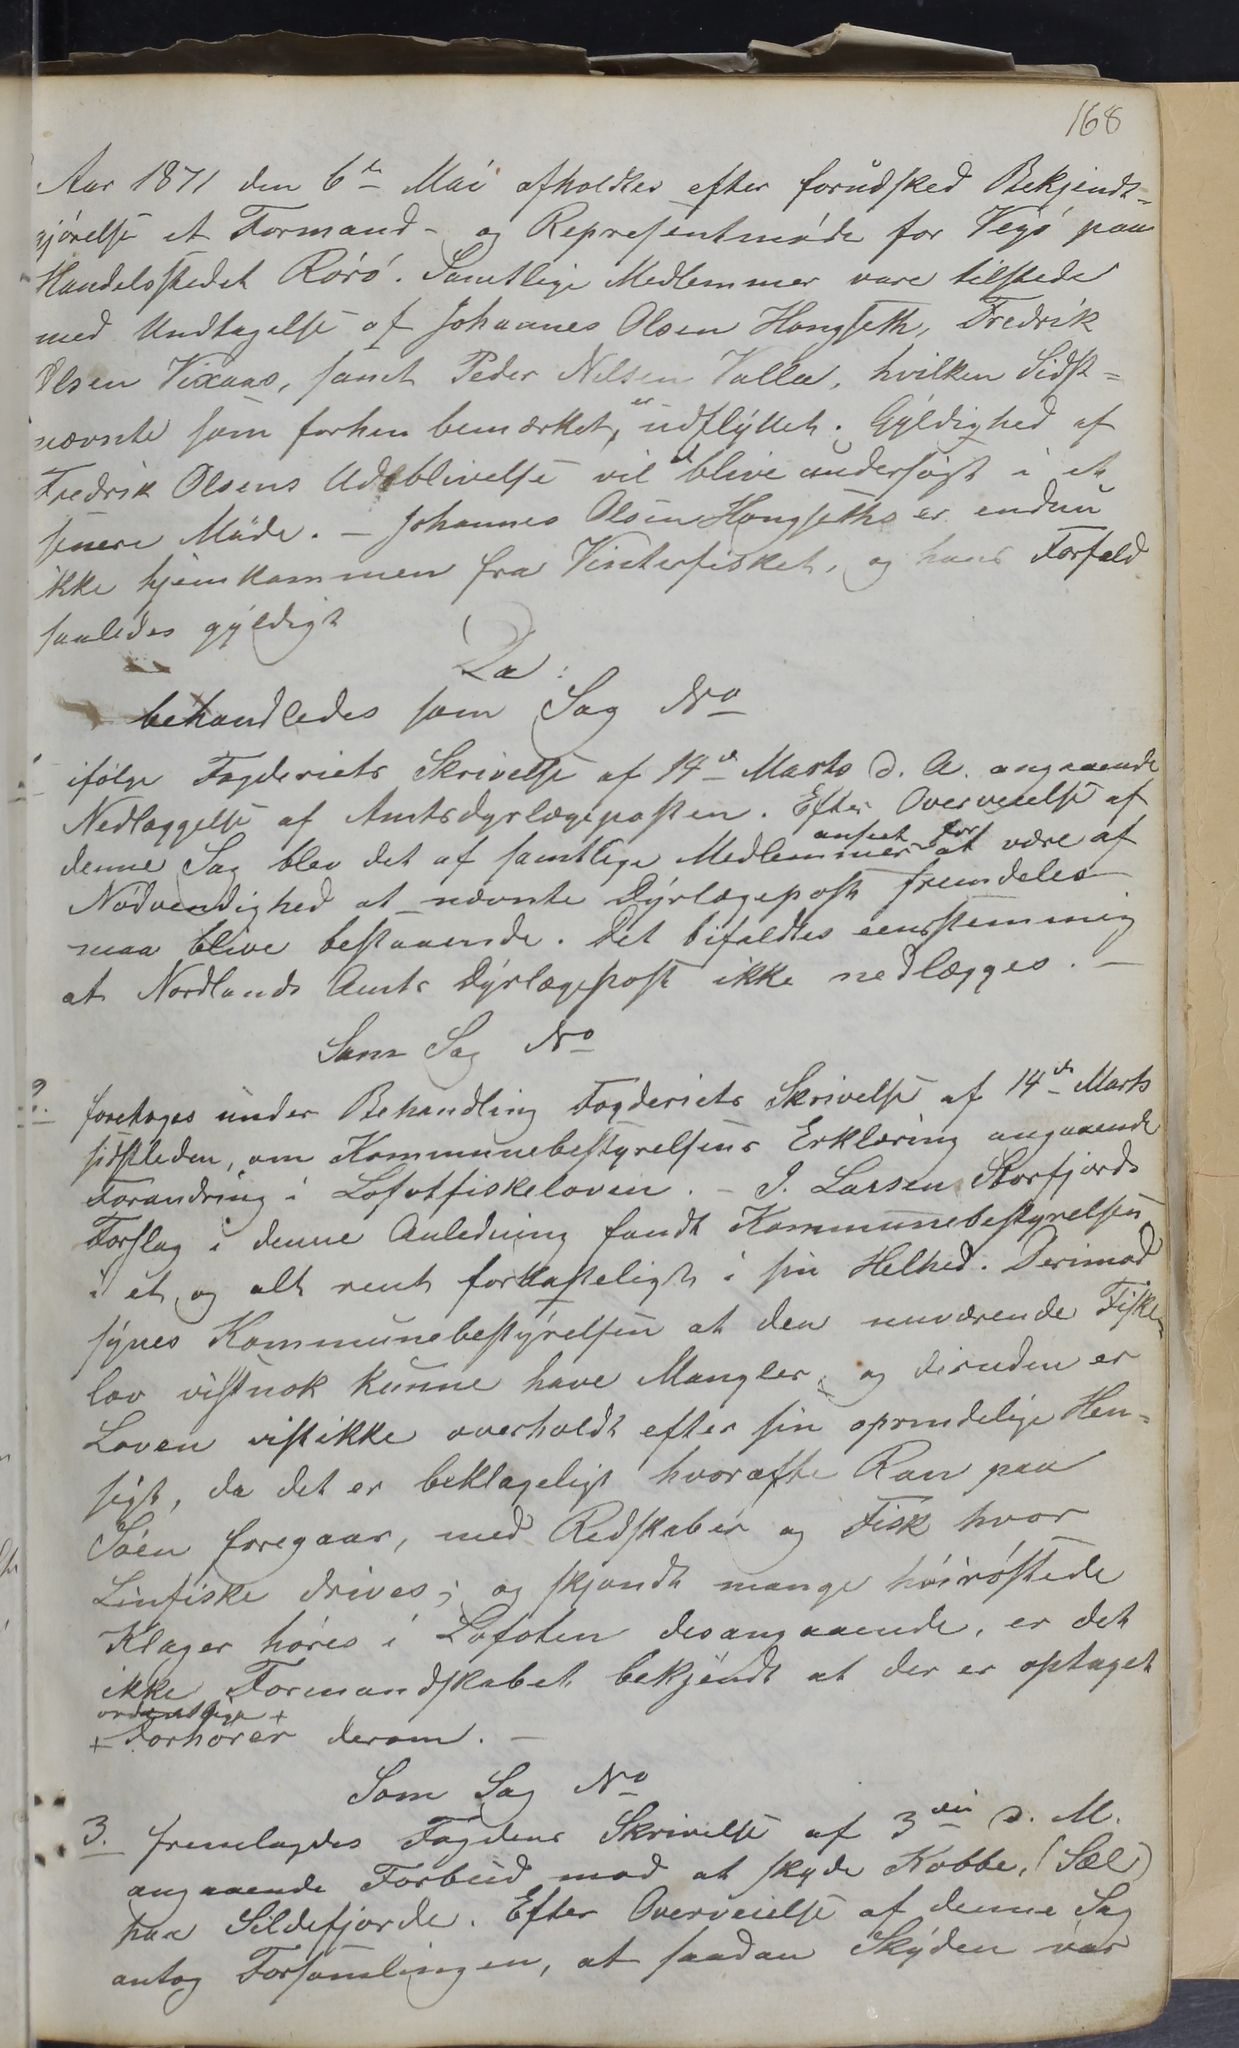 168
Aar 1871 den 6te Mai afholdtes efter forudsked Bekjendt-
gjörelse et Formand- og Representmöde for Vegö paa
Handelsstedet Rörö. Samtlige Medlemmer vare tilstede
med Undtagelse af Johannes Olsen Hongseth, Fredrik
Olsen Vixaas, samt Peder Nilsen Valla, hvilken Sidst-
nævnte som forhen bemærket, er udflyttet. Gyldighed af
Fredrik Olsens Udeblivelse vil blive undersögt i et
senere Möde. - Johannes Olsen Hongseths er endnu
ikke hjemkommen fra Vinterfisket, og hans Forfald
saaledes gyldigt
Da:
behandledes som Sag No
1. ifölge Fogderiets Skrivelse af 14de Marts d. A. angaaende
Nedlæggelse af Amtsdyrlægeposten. Efter Overveielse af
denne Sag blev det af samtlige Medlemmer anseet for at være af
Nödvendighed at nævnte Dyrlægepost fremdeles
maa blive bestaaende. Det bifaldtes eenstemmig
at Nordlands Amts Dyrlægepost ikke nedlægges. -
Som Sag No
2. foretoges under Behandling Fogderiets Skrivelse af 14de Marts
sidstleden, om Kommunebestyrelsens Erklæring angaaende
Forandring i Lofotfiskeloven. - J. Larsen Storfjords
Forslag i denne Anledning fandt Kommunebestyrelsen
i et og alt rent forkasteligt i sin Helhed. Derimod
synes Kommunebestyrelsen at den nuværende Fiske-
lov vistnok kunne have Mangler, og desuden er
Loven vist ikke overholdt efter sin oprindelige Hen-
sigt, da det er beklageligt hvorofte Ran paa
Söen foregaar, med Redskaber og Fisk hvor
Linfiske drives; og skjöndt mange höiröstede
Klager höres i Lofoten desangaaende, er det
ikke Formandskabet bekjendt at der er optaget
ordentlige +
+ Forhörer derom. -
Som Sag No
3. fremlagdes Fogdens Skrivelse af 3die d. M.
angaaende Forbud mod at skyde Kobbe, (Sæl)
paa Sildefjorde. Efter Overveielse af denne Sag
antog Forsamlingen, at saadan Skyden var